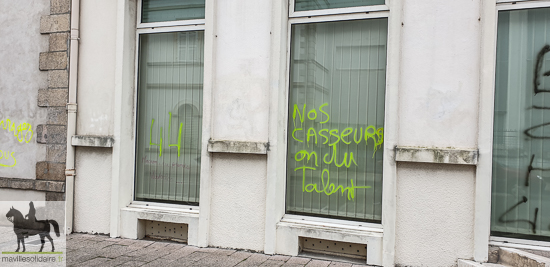 44
Nos
CASSEURS
on du
Talent
mavillesolidaire.fr